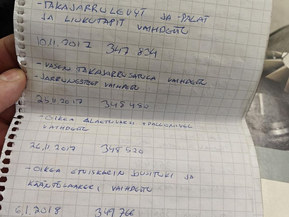 - TAKAJARRULEVYT JA PALAT
JA LIUKUTAPIT VAIHDETTU
10.11.2017 347 834
- VASEN TAKAJARRUSATULA VAIHDETTU
- JARRUNESTEET VAIHDETTU
25.11.2017 348 450
- OIKEA ALATUKIVARSI
VAIHDETTU
26.11.2017 348 450
- OIKEA ETUISKARIN JA
VAIHDETTU
6.1.2018 349 766